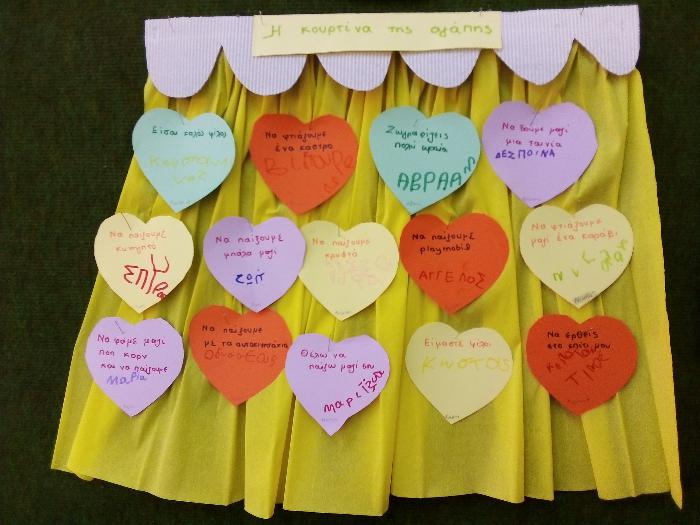 Η κουρτίνα της αγάπης
Είσαι καλός φίλος
Να φτιάξουμε
ένα κάστρο
Ζωγραφίζεις
πολύ ωραία
ΑΒΡΑΑΜ
Να δούμε μαζί
μια ταινία
ΔΕΣΠΟΙΝΑ
Να παίξουμε
κυνηγητό
ΣΠΥΡΟ
Να παίξουμε
μπάλα μαζί
ΖΩΗ
Να παίξουμε
κρυφτό
Να παίξουμε
playmobil
ΑΓΓΕΛΟΣ
Να φτιάξουμε
μαζί ένα καράβι
Να φάμε μαζί
ποπ κορν
και να παίξουμε
Μαρία
Να παίξουμε
με τα αυτοκινητάκια
Θέλω να
παίξω μαζί σου
Είμαστε φίλοι
ΚΝΣΤΑΣ
Να έρθεις
στο σπίτι μου